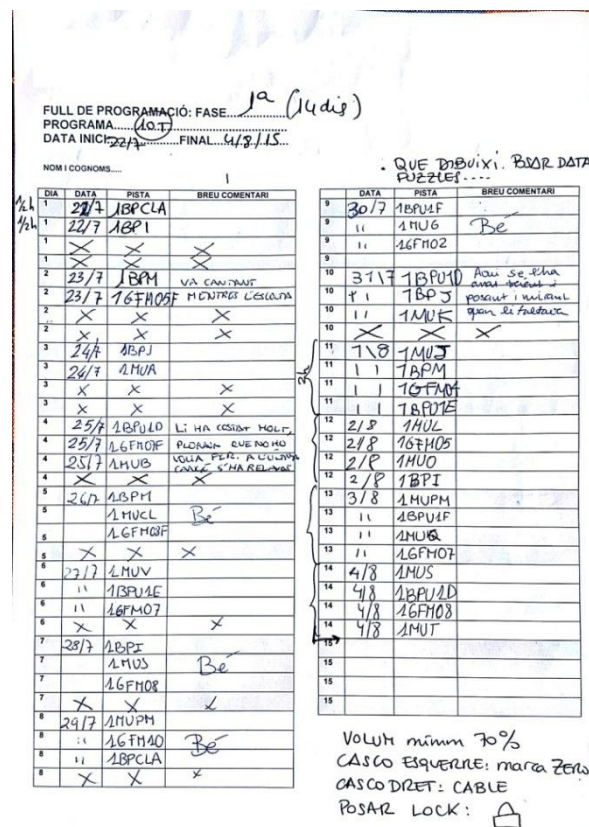 1ª (14 dis)
FULL DE PROGRAMACIÓ: FASE
PROGRAMA 10.T
DATA INICI 22/7 FINAL 4/8/15
NOM I COGNOMS
. QUE DIBUIXI. POSAR DATA
PUZZLES....
DIA DATA PISTA BREU COMENTARI
1/2h 1 22/7 1BPCLA
1/2h 1 22/7 1BPI
1 X X X
1 X X X
2 23/7 1BPM VA CANTANT
2 23/7 16FM05F MENTRES L'ESCOLTA
2 X X X
2 X X X
3 24/7 1BPJ
3 24/7 1MUA
3 X X X
3 X X X
4 25/7 1BPU1D LI HA COSTAT MOLT,
4 25/7 16FM07F PLORAVA QUE NO HO
4 25/7 1MUB VOLIA FER. A L'ULTIMA
4 X X X CANÇÓ S'HA RELAXAT
5 26/7 1BPM
5 1MUCL Bé
5 16FM08F
5 X X X
6 27/7 1MUV
6 '' 1BPU1E
6 '' 16FM07
6 X X X
7 28/7 1BPI
7 1MUS Bé
7 16FM08
7 X X X
8 29/7 1MUPM
8 '' 16FM10 Bé
8 '' 1BPCLA
8 X X X
DATA PISTA BREU COMENTARI
9 30/7 1BPU1F
9 '' 1MUG Bé
9 '' 16FM02
9
10 31/7 1BPU1D Aqui se l'ha
10 '' 1BPJ posant i mirant
10 '' 1MUK quan li faltava
10 X X X
3h
11 1/8 1MUJ
11 '' 1BPM
11 '' 16FM04
11 '' 1BPU1E
12 2/8 1MUL
12 2/8 16FM05
12 2/8 1MUO
12 2/8 1BPI
13 3/8 1MUPM
13 '' 1BPU1F
13 '' 1MUQ
13 '' 16FM07
14 4/8 1MUS
14 4/8 1BPU1D
14 4/8 16FM08
14 4/8 1MUT
15
15
15
15
VOLUM mínim 70%
CASCO ESQUERRE: marca ZERO
CASCO DRET: CABLE
POSAR LOCK: